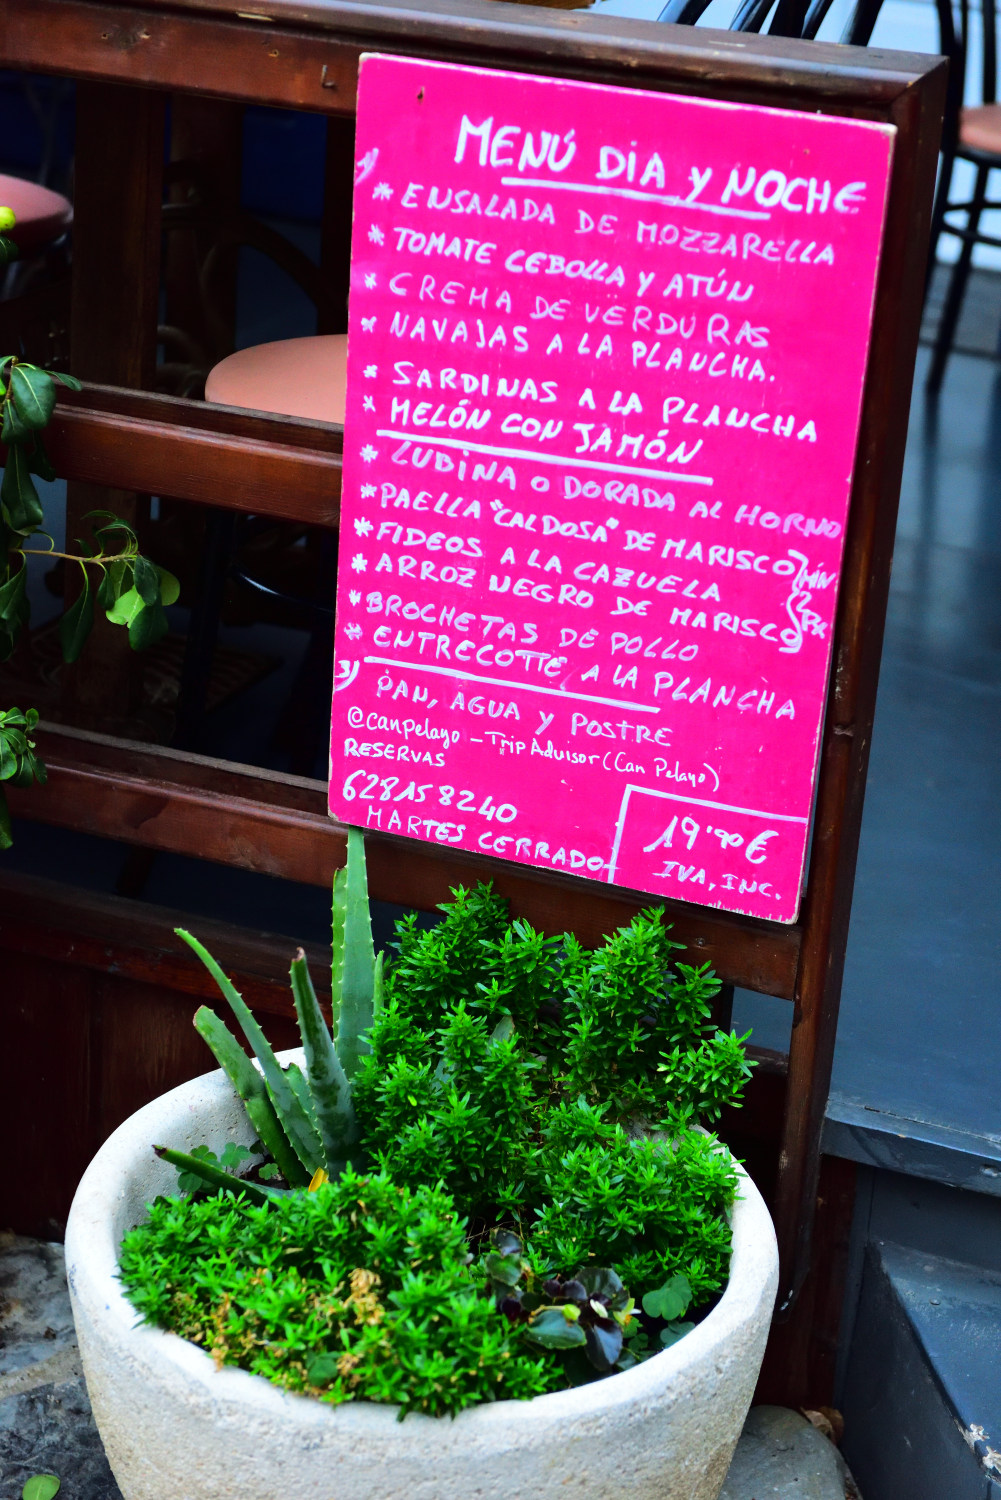 MENÚ DIA y NOCHE
1)
* ENSALADA DE MOZZARELLA
* TOMATE CEBOLLA Y ATÚN
* CREMA DE VERDURAS
* NAVAJAS A LA PLANCHA.
* SARDINAS A LA PLANCHA
* MELÓN CON JAMÓN
* LUBINA O DORADA AL HORNO
* PAELLA "CALDOSA" DE MARISCO
* FIDEOS A LA CAZUELA
* ARROZ NEGRO DE MARISCO
MÍN 2 PX
* BROCHETAS DE POLLO
* ENTRECOTTE A LA PLANCHA
3) PAN, AGUA Y POSTRE
@canpelayo - Trip Advisor (Can Pelayo)
RESERVAS
628158240
MARTES CERRADO
19'90 €
IVA, INC.